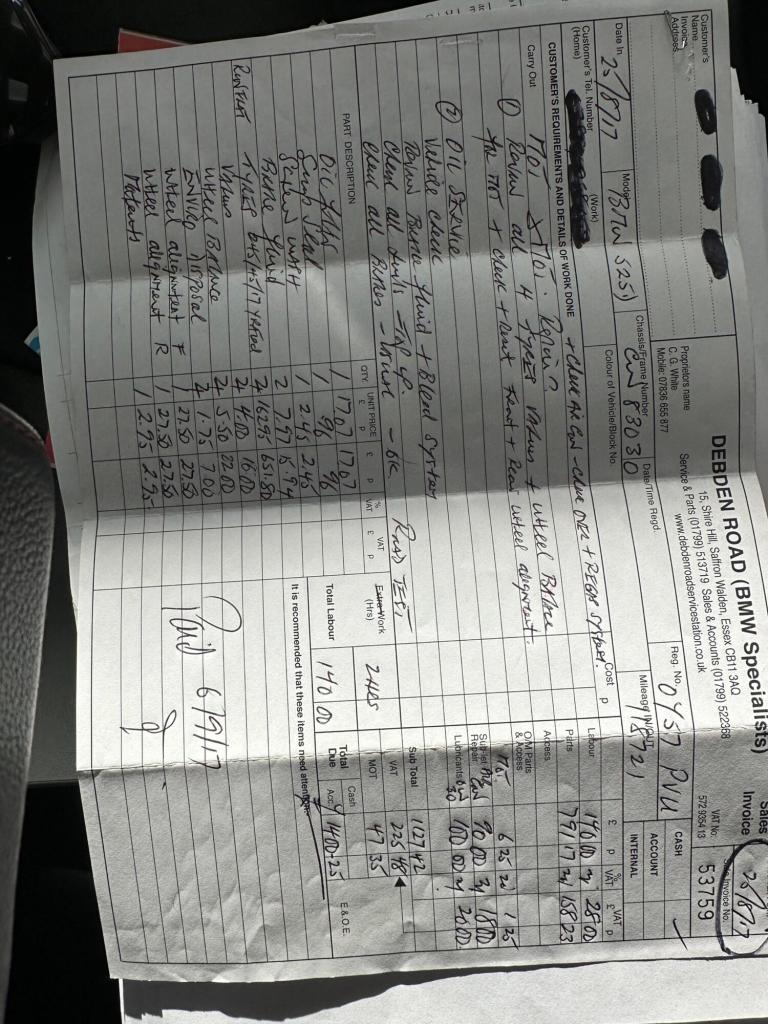 DEBDEN ROAD (BMW Specialists)
15, Shire Hill, Saffron Walden, Essex CB11 3AQ
Service & Parts (01799) 513719 Sales & Accounts (01799) 522368
www.debdenroadservicestation.co.uk
Sales
Invoice
25/8/17
Invoice No.
VAT No.
572 9354 13
53759
Customer's
Name
Invoice
Address
Proprietors name
C. G. White
Mobile: 07836 655 877
Reg. No. OY57 PVU
CASH
ACCOUNT
INTERNAL
Date In 25/8/17
Model BMW 525i
Chassis/Frame Number CW 83030
Date/Time Regd.
Mileage IN/OUT 118721
Customer's Tel. Number
(Home)
(Work)
Colour of Vehicle/Block No.
CUSTOMER'S REQUIREMENTS AND DETAILS OF WORK DONE
Cost
£ p
Carry Out MOT & MOT. Repairs + Check Air Con - Check over + Regas System.
① Renew all 4 Tyres Valves + Wheel Balance
for MOT + Check + Reset Front + Rear wheel alignment.
② Oil Service
Vehicle Check
Renew Brake fluid + Bleed System
Check all levels - Top up.
Check all Brakes - - ok Road Test
PART DESCRIPTION QTY. UNIT PRICE £ p £ p % VAT VAT £ p
Oil Filter 1 17.07 17.07
Sump Seal 1 96 96
Screen wash 1 2.45 2.45
Brake fluid 2 7.97 15.94
Runflat Tyres 245/45/17 4 162.95 651.80
Valves 4 4.00 16.00
Wheel Balance 4 5.50 22.00
Enviro Disposal 4 1.75 7.00
Wheel alignment F 1 27.50 27.50
Wheel alignment R 1 27.50 27.50
Materials 1 2.95 2.95
Extra Work
(Hrs) 2 HRS
Total Labour 140 00
It is recommended that these items need attention:
Paid 6/9/17
£ p % VAT VAT £ p
Labour 140 00 20 28 00
Parts 791 17 20 158 23
Access.
O/M Parts
& Access
6 25 20 1 25
Sublet
Repair 90 00 20 18 00
Lubricants 100 00 20 20 00
Sub Total 1127 42
VAT 225 48
MOT 47 35
Total
Due
Cash
Acc 1400.25
E.&O.E.